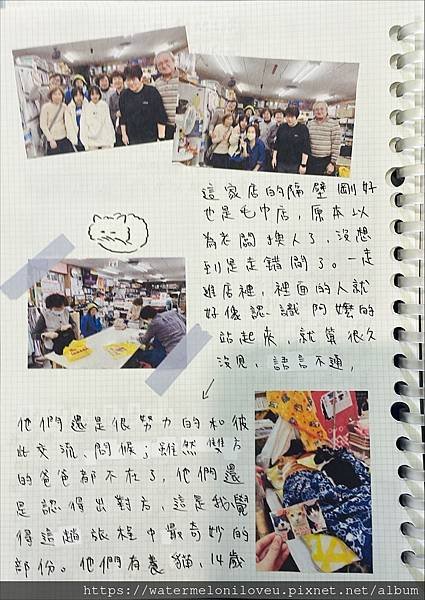 這家店的隔壁剛好
也是毛巾店，原本以
為老闆換人了，沒想
到是走錯間了。一走
進店裡，裡面的人就
好像認識阿嬤的
站起來，就算很久
沒見，語言不通，
他們還是很努力的和彼
此交流、問候；雖然雙方
的爸爸都不在了，他們還
是認得出對方，這是我覺
得這趟旅程中最奇妙的
部份。他們有養貓，14歲
https://watermeloniloveu.pixnet.net/album